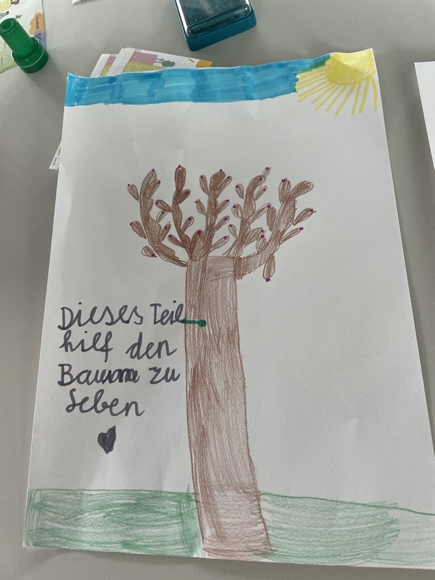 Dieses Teil
hilf den
Bauam zu
Leben